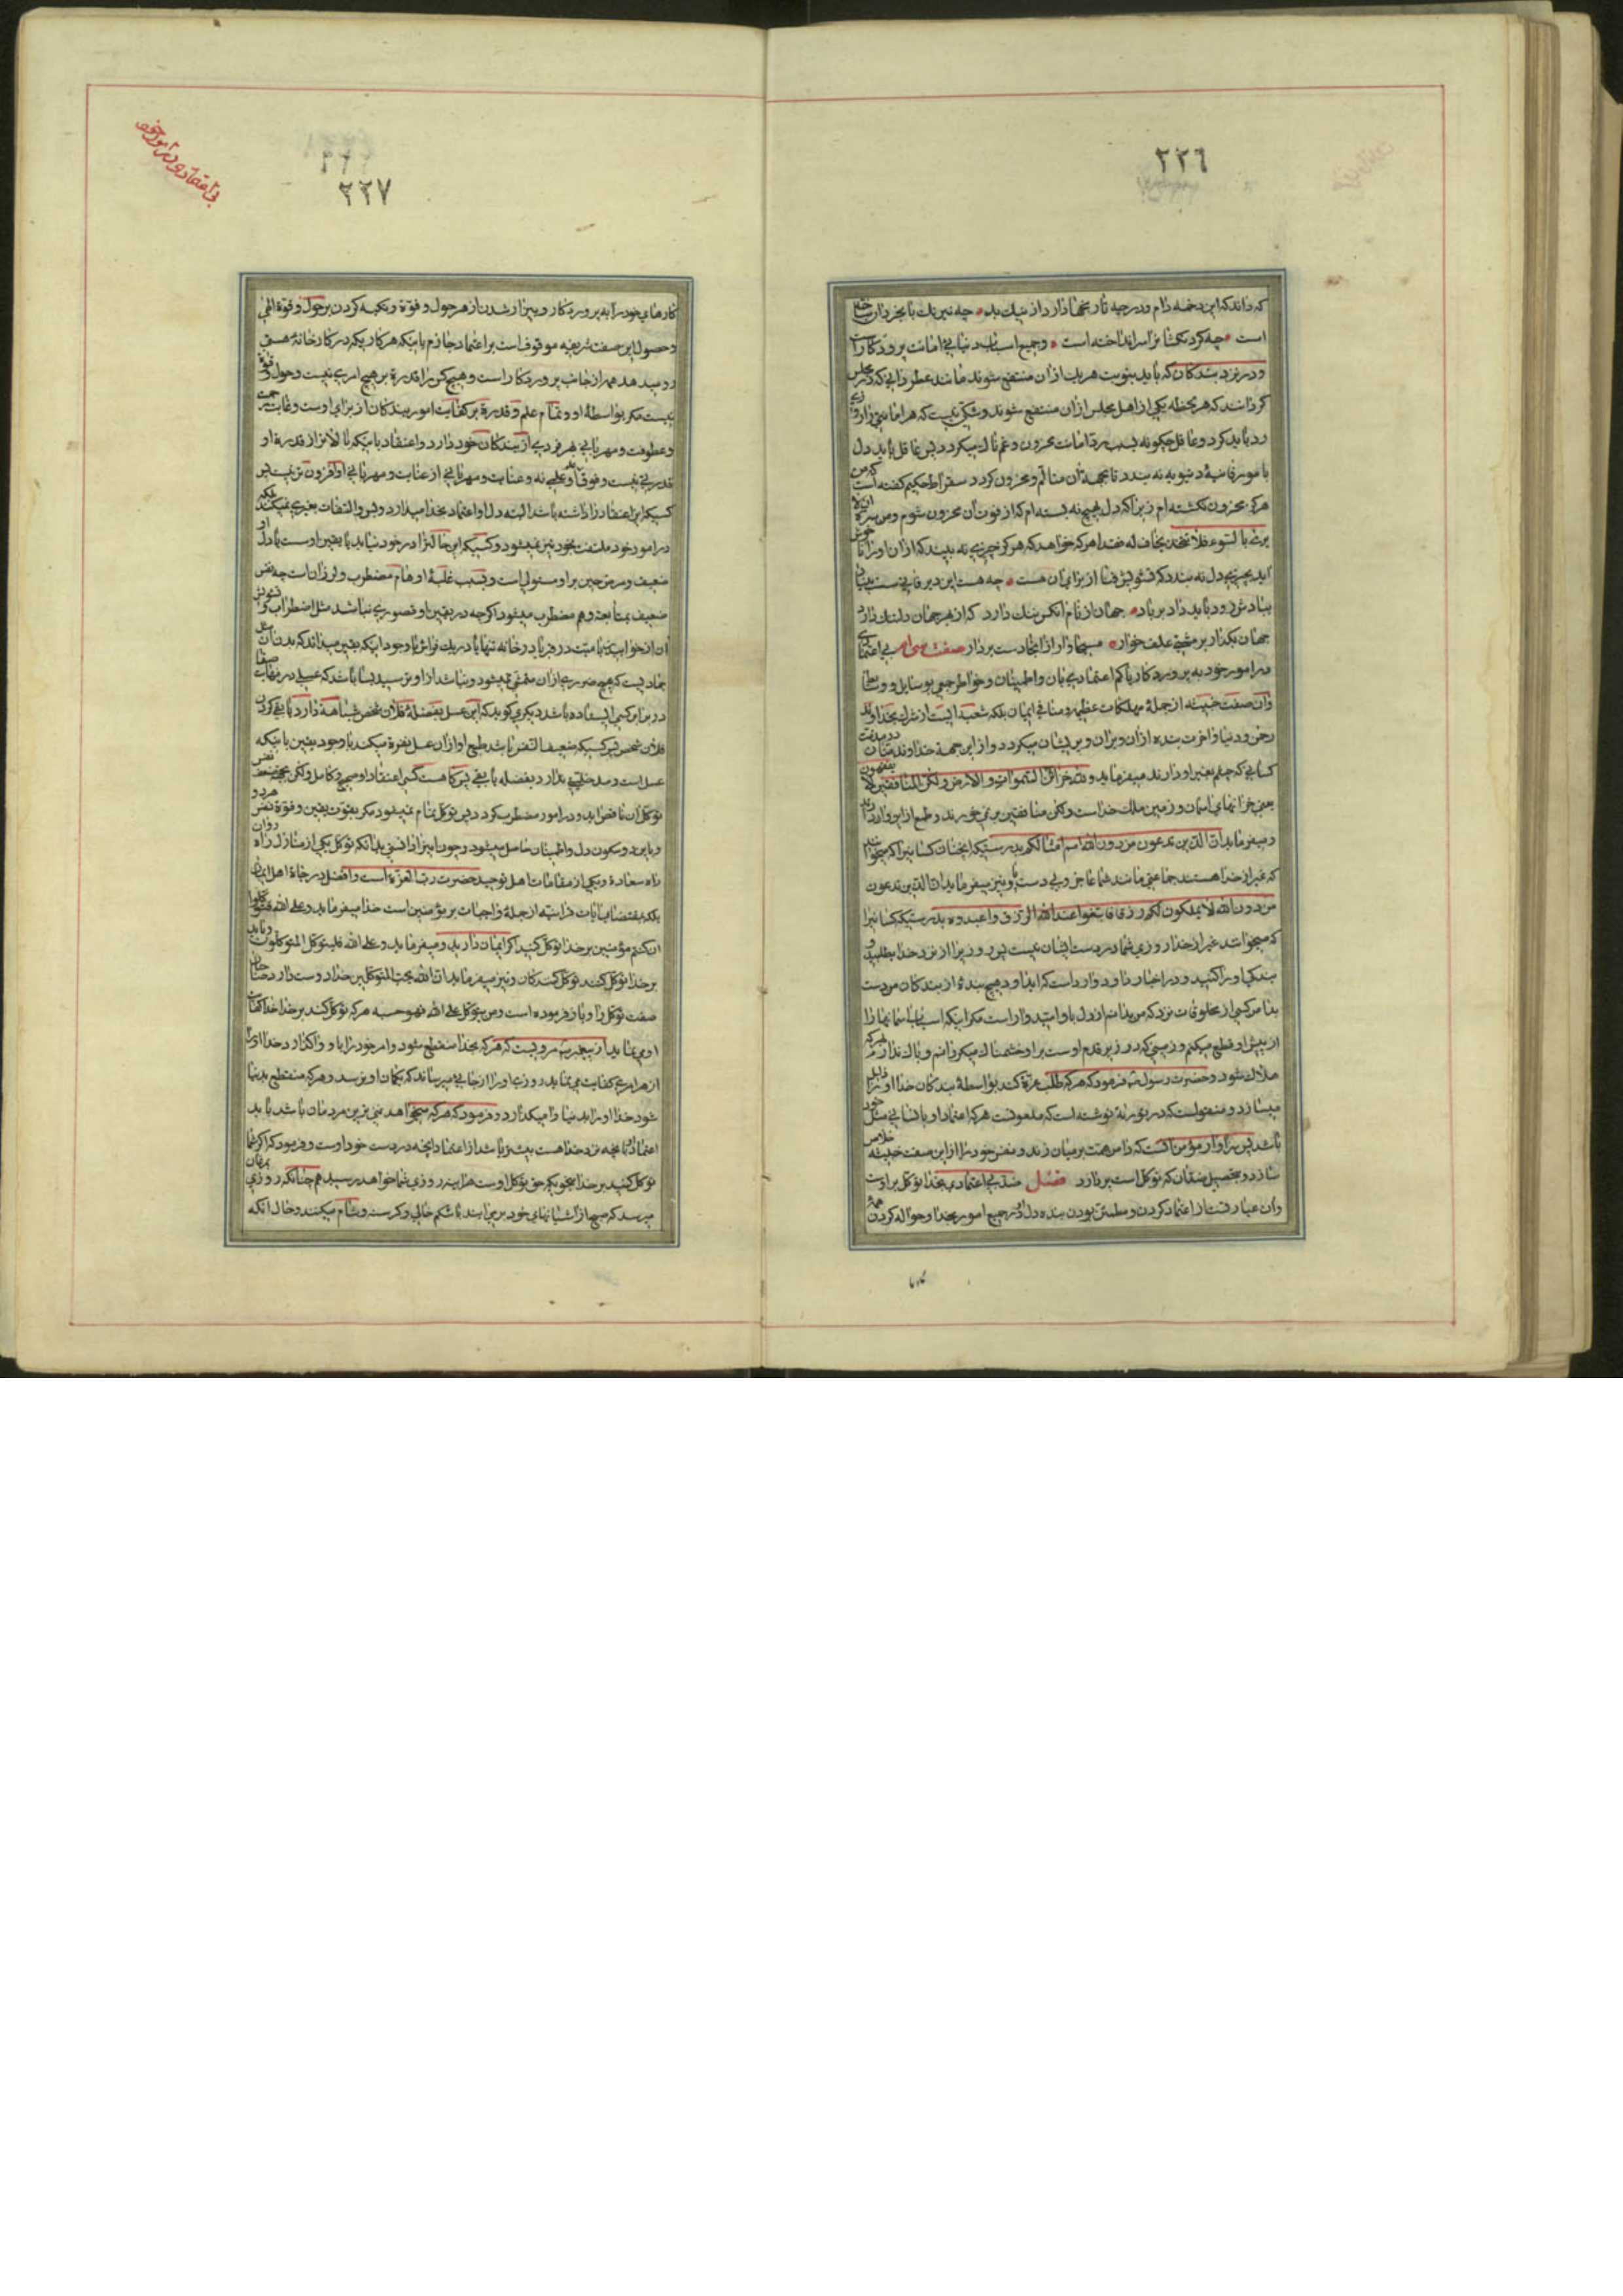 ٢٢٦
که داند که این دخمه دام و درچه تاریخها دارد از نیک بد چه نیرنک با بخردان ساخته
است چه کردنکشانرا سر انداخته است و جمیع اسباب دنیایی امانت پروردکار است
و در نزد بندکان که باید بنوبت هریك از ان منتفع شوند مانند عطردانی که در مجلس
کردانند که هر لحظه یکی از اهل مجلس از ان منتفع شوند و شکی نیست که هر امانتی را روزی
رد باید کرد و عاقل چکونه بسبب رد امانت محزون و غمناك میکردد پس عاقل باید دل
بامور فانیۀ دنیویه نه بندد تا بجهة ان متالم و محزون کردد سقراط حکیم کفته است که من
هرکز محزون نکشته ام زیرا که دل بهیچ نه بسته ام که از فوت ان محزون شوم و من سره ان لا
یری ما یسوءه فلا یتخذ شیئا یخاف له فقدا هرکه خواهد که هرکز چیزی نه بیند که از ان او را ناخوش
اید بچیزی دل نه بندد که تشویش فنا از برای ان هست چه هست این دیر فانی سست بنیان
ببادش داد باید زود بر باد جهان از نام انکس ننك دارد که از بهر جهان دلتنك دارد
جهان بکذار بر مشتی علف خوار مسیحا وار از اینجا دست بردار صفت سی ام بی اعتمادی
در امور خود به پروردکار یا کم اعتمادی بان و اطمینان و خواطر جمعی بوسایل و وسایط
وان صفت خبیثه از جملۀ مهلکات عظیمه و منافی ایمان بلکه شعبه ایست از شرك بخداوند
رحمن و دنیا و اخرت بنده از ان ویران و پریشان میکردد و از این جهة خداوند منان در مذمت
کسانی که چشم بغیر او دارند میفرماید ولله خزائن السموات والارض ولکن المنافقین لا یفقهون
یعنی خزانهای اسمان و زمین ملك خداست ولکن منافقین بر نمی خورند و طمع از این و ان دارند
و میفرماید ان الذین تدعون من دون الله امثالکم بدرستیکه انچنان کسانیرا که میخوانید
که غیر از خدا هستند جماعتی مانند شما عاجز و بی دست و پا و نیز میفرماید ان الذین تدعون
من دون الله لا یملکون لکم رزقا فابتغوا عند الله الرزق واعبدوه بدرستیکه کسانیرا
که میخوانید غیر از خدا روزی شما در دست ایشان نیست پس روزیرا از نزد خدا بطلبید و
بندکی او را کنید و در اخبار داود وارد است که ایداود هیچ بندۀ از بندکان من دست
بدامن کسی از مخلوقات نزد که من بدانم از دل باو امیدوار است مکر اینکه اسباب اسمانها را
از پیش او قطع میکنم و زمینی که در زیر قدم اوست بر او خشمناك میکردانم و باك ندارم هرکه
هلاك شود و حضرت رسول ص فرمود که هرکه طلب عزة کند بواسطۀ بندکان خدا او را ذلیل
میسازد و منقولست که در توریة نوشته است که ملعونست هرکه اعتماد او بانسانی مثل خود
باشد پس سزاوار مؤمن انست که دامن همت بر میان زند و نفس خود را از این صفت خبیثه خلاص
سازد و بتحصیل ضد ان که توکل است پردازد فصل ضد بی اعتمادی بخدا توکل بر اوست
وان عبارتست از اعتماد کردن و مطمئن بودن بنده دل او در جمیع امور بخدا و حواله کردن همۀ
بی اعتقاد و در امور خود
٢٢٧
کارهای خود را به پروردکار و بیزار شدن از هر حول و قوة و تکیه کردن بر حول و قوة الهی
و حصول این صفت شریفه موقوف است بر اعتماد جازم باینکه هر کاریکه در کارخانۀ هستی
رو میدهد همه از جانب پروردکار است و هیچ کس را قدرة بر هیچ امری نیست و حول و قوة
نیست مکر بواسطۀ او و تمام علم و قدرة بر کفایت امور بندکان از برای اوست و غایت رحمت
و عطوفت و مهربانی بهر فردی از بندکان خود دارد و اعتقاد باینکه بالاتر از قدرة او
قدرتی نیست و فوق علم او علمی نه و عنایت و مهربانی از عنایت و مهربانی او افزون تر نیست پس
کسیکه این اعتقاد را داشته باشد البته دل او اعتماد بخدا میدارد و بس و التفات بغیری نمیکند بلکه
در امور خود ملتفت بخود نیز نمیشود و کسیکه این حالترا در خود نیابد یا یقین او سست یا دل او
ضعیف و مرض جبن بر او مستولی است و بسبب غلبۀ اوهام مضطرب و لرزان است چه نفس
ضعیف بمتابعت وهم مضطرب میشود اکرچه در یقین او قصوری نباشد مثل اضطراب و تشویش
ان از خوابیدن با میت در قبر یا در خانه تنها یا در یك فراش با وجود اینکه یقین میداند که بدن ان مثل
جمادیست که هیچ ضرری از ان متمشی نمیشود و نباشد از او ترسید بسا باشد که عسلی در نهایت صفا
در برابر کسی ایستاده باشد دیکری کوید که این عسل بفضلۀ فلان شخص شباهة دارد یا قی کردن
فلان شخص پس کسیکه ضعیف النفس باشد طبع او از ان عسل نفرة میکند با وجود یقین باینکه
عسل است و مدخلیتی ندارد بفضله یا بقی پس کاهست کسی اعتقاد او صحیح و کامل ولکن بجهة ضعف نفس
توکل ان ناقص اید و در امور مضطرب کردد پس توکل تمام نمیشود مکر بقوت یقین و قوة نفس هر دو
و باین دو سکون دل و اطمینان حاصل میشود و چون اینرا دانستی بدانکه توکل یکی از منازل راه روان
راه سعادة و یکی از مقامات اهل توحید حضرت رب العزة است و افضل درجاة اهل ایمان
بلکه بمقتضای ایات قرانیه از جملۀ واجبات بر مؤمنین است خدا میفرماید وعلی الله فتوکلوا
ان کنتم مؤمنین بر خدا توکل کنید اکر ایمان دارید و میفرماید وعلی الله فلیتوکل المتوکلون و باید
بر خدا توکل کنند توکل کنندکان و نیز میفرماید ان الله یحب المتوکلین خدا دوست دارد صاحبان
صفت توکل را و باز فرموده است ومن یتوکل علی الله فهو حسبه هرکه توکل کند بر خدا خدا کفایت
او می نماید از پیغمبر ص مرویست که هرکه بخدا منقطع شود و امر خود را باو واکذارد خدا او را
از هر امری کفایت می نماید و روزی او را از جایی میرساند که بکمان او نرسد و هرکه منقطع بدنیا
شود خدا او را بدنیا وامیکذارد و فرمود که هرکه میخواهد غنی ترین مردمان باشد باید
اعتماد او بانچه نزد خداهست بیشتر باشد از اعتماد بانچه در دست خود اوست و فرمود که اکر شما
توکل کنید بر خدا بنحویکه حق توکل اوست هراینه روزی شما خواهد رسید هم چنانکه روزی مرغان
میرسد که صبح از اشیانهای خود بر می ایند با شکم خالی و کرسنه و شام میکنند و حال انکه